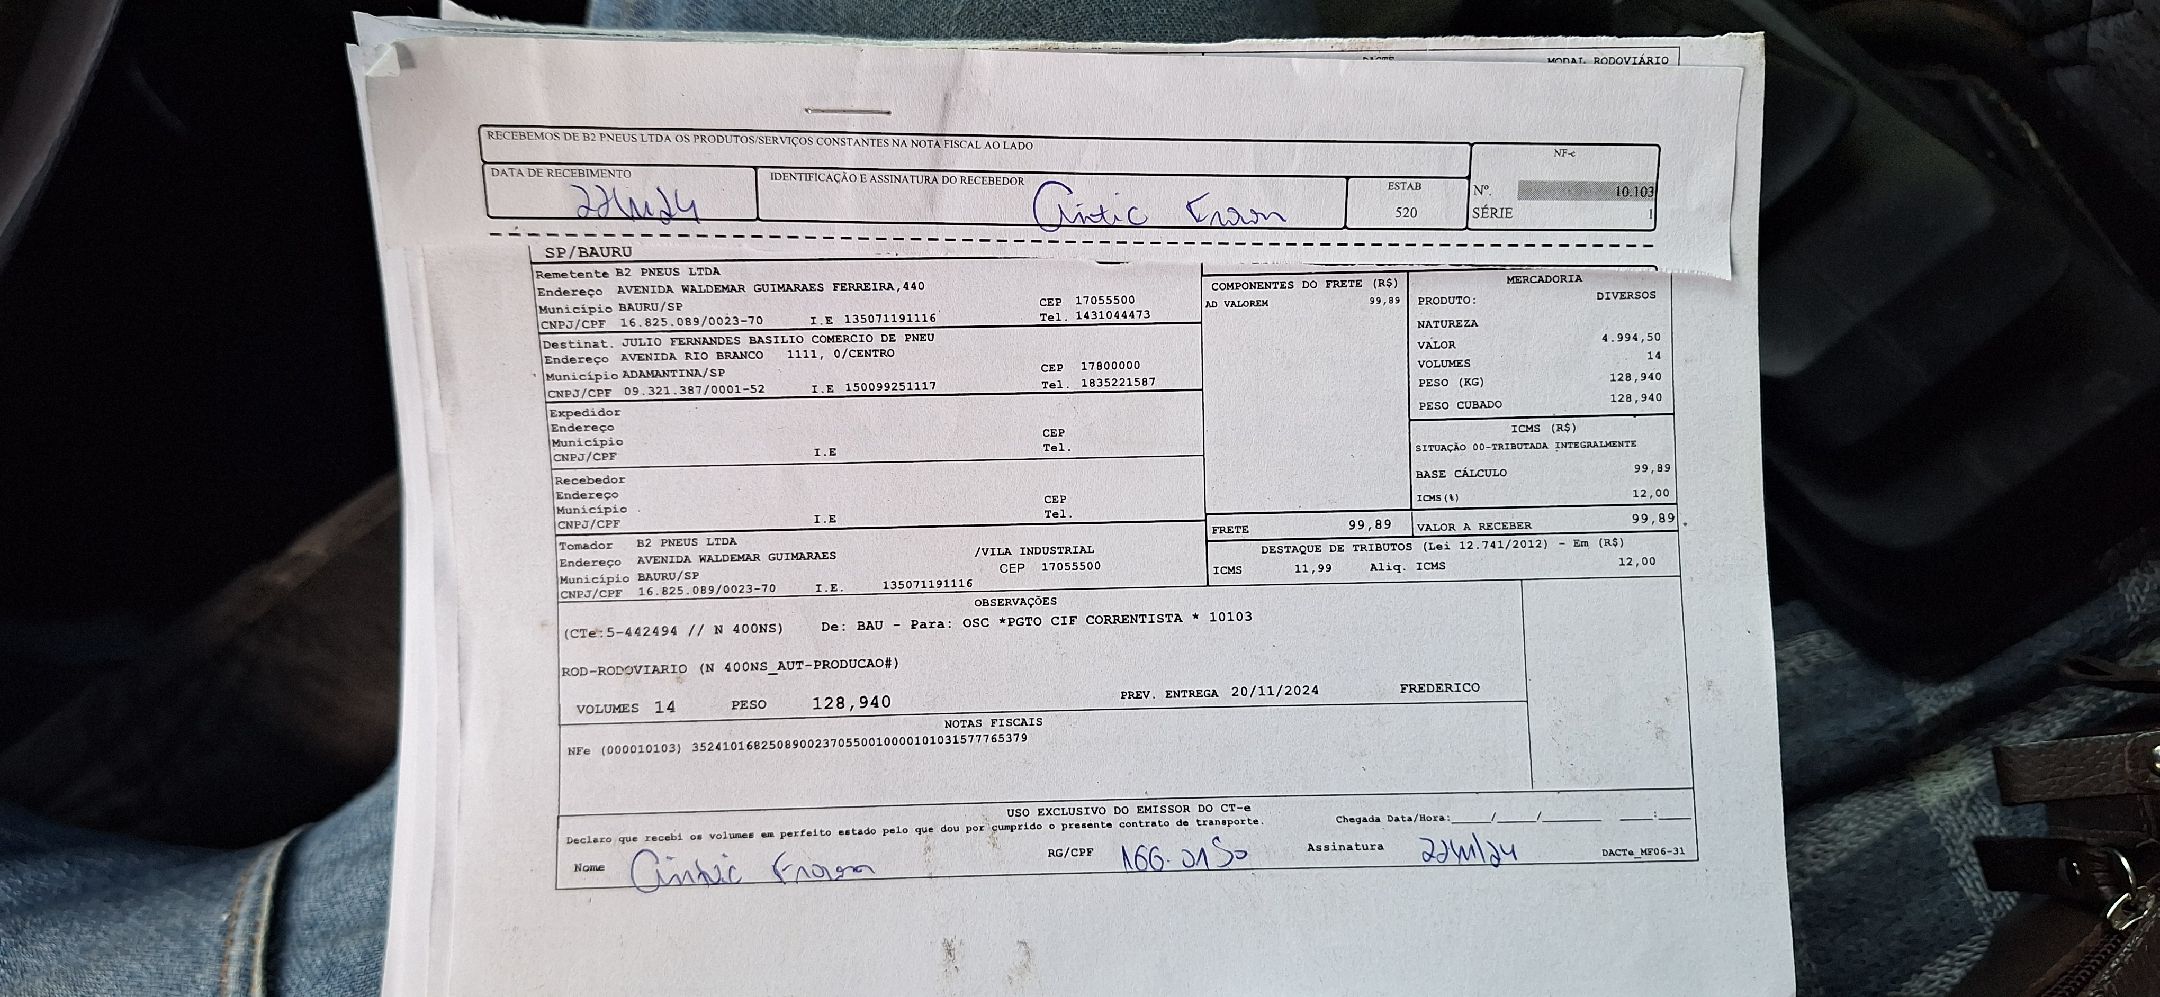 DACTE MODAL RODOVIÁRIO
RECEBEMOS DE B2 PNEUS LTDA OS PRODUTOS/SERVIÇOS CONSTANTES NA NOTA FISCAL AO LADO
NF-e
DATA DE RECEBIMENTO
IDENTIFICAÇÃO E ASSINATURA DO RECEBEDOR
ESTAB
520
Nº. 10.103
SÉRIE 1
SP/BAURU
Remetente B2 PNEUS LTDA
Endereço AVENIDA WALDEMAR GUIMARAES FERREIRA,440
Município BAURU/SP CEP 17055500
CNPJ/CPF 16.825.089/0023-70 I.E 135071191116 Tel. 1431044473
Destinat. JULIO FERNANDES BASILIO COMERCIO DE PNEU
Endereço AVENIDA RIO BRANCO 1111, 0/CENTRO
Município ADAMANTINA/SP CEP 17800000
CNPJ/CPF 09.321.387/0001-52 I.E 150099251117 Tel. 1835221587
Expedidor
Endereço
Município CEP
CNPJ/CPF I.E Tel.
Recebedor
Endereço
Município CEP
CNPJ/CPF I.E Tel.
Tomador B2 PNEUS LTDA
Endereço AVENIDA WALDEMAR GUIMARAES /VILA INDUSTRIAL
Município BAURU/SP CEP 17055500
CNPJ/CPF 16.825.089/0023-70 I.E. 135071191116
COMPONENTES DO FRETE (R$)
AD VALOREM 99,89
FRETE 99,89
MERCADORIA
PRODUTO: DIVERSOS
NATUREZA
VALOR 4.994,50
VOLUMES 14
PESO (KG) 128,940
PESO CUBADO 128,940
ICMS (R$)
SITUAÇÃO 00-TRIBUTADA INTEGRALMENTE
BASE CÁLCULO 99,89
ICMS(%) 12,00
VALOR A RECEBER 99,89
DESTAQUE DE TRIBUTOS (Lei 12.741/2012) - Em (R$)
ICMS 11,99 Aliq. ICMS 12,00
OBSERVAÇÕES
(CTe:5-442494 // N 400NS) De: BAU - Para: OSC *PGTO CIF CORRENTISTA * 10103
ROD-RODOVIARIO (N 400NS_AUT-PRODUCAO#)
VOLUMES 14 PESO 128,940 PREV. ENTREGA 20/11/2024 FREDERICO
NOTAS FISCAIS
NFe (000010103) 35241016825089002370550010000101031577765379
USO EXCLUSIVO DO EMISSOR DO CT-e
Declaro que recebi os volumes em perfeito estado pelo que dou por cumprido o presente contrato de transporte. Chegada Data/Hora:____/____/______ ____:____
Nome RG/CPF Assinatura DACTe_MF06-31